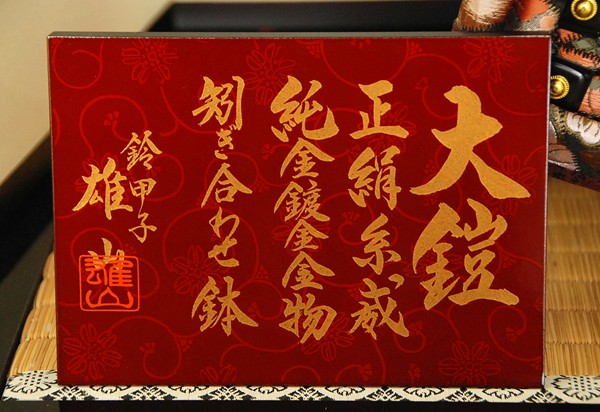 大鎧
正絹糸威
純金鍍金金物
矧ぎ合わせ鉢
鈴甲子
雄山
雄山